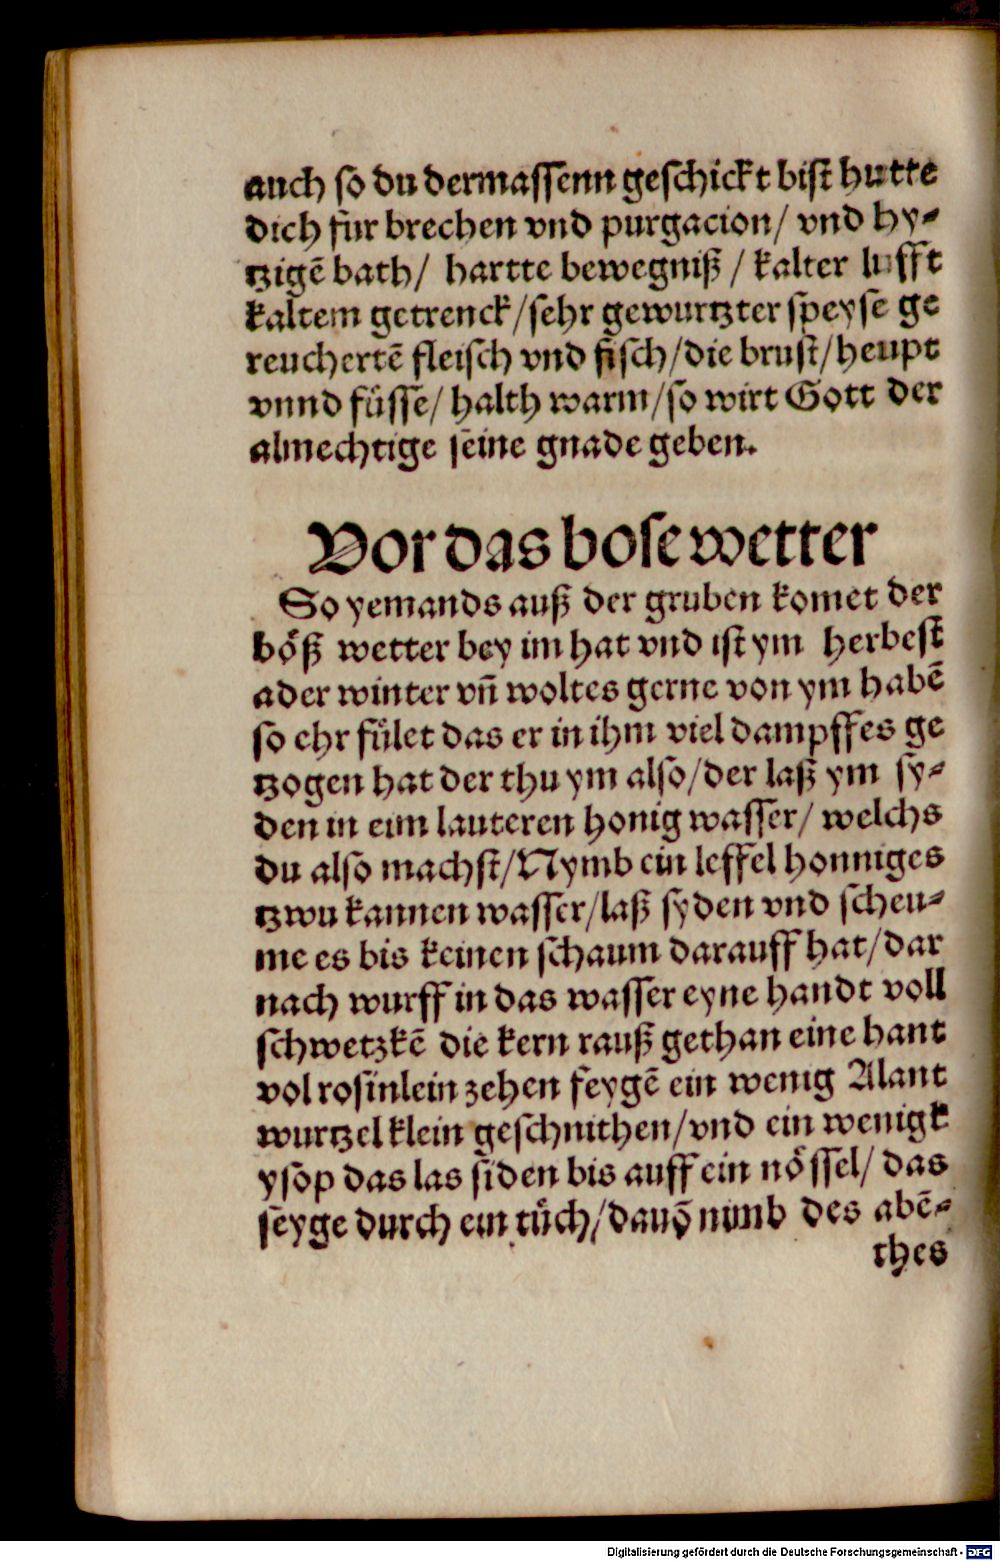 auch so du dermassenn geschickt bist hutte
dich für brechen vnd purgacion/ vnd hy⸗
tzigē bath/ hartte bewegniß / kalter lufft
kaltem getrenck/sehr gewurtzter speyse ge
reuchertē fleisch vnd fisch/die brust/heupt
vnnd füsse/ halth warm/so wirt Gott der
almechtige seine gnade geben.
Vor das bose wetter
So yemands auß der gruben komet der
böß wetter bey im hat vnd ist ym herbest
ader winter vñ woltes gerne von ym habē
so ehr fület das er in ihm viel dampffes ge
tzogen hat der thu ym also/der laß ym sy⸗
den in eim lauteren honig wasser/ welchs
du also machst/Nymb ein leffel honniges
tzwu kannen wasser/laß syden vnd scheu⸗
me es bis keinen schaum darauff hat/dar
nach wurff in das wasser eyne handt voll
schwetzkē die kern rauß gethan eine hant
vol rosinlein zehen feygē ein wenig Alant
wurtzel klein geschnithen/vnd ein wenigk
ysop das las siden bis auff ein nössel/ das
seyge durch ein tüch/dauō nimb des abē⸗
thes
Digitalisierung gefördert durch die Deutsche Forschungsgemeinschaft - DFG